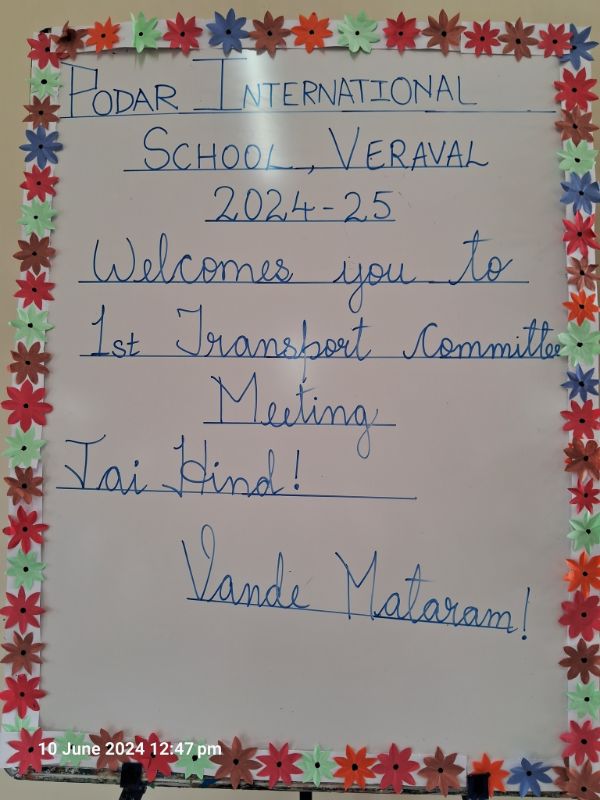 PODAR INTERNATIONAL
SCHOOL, VERAVAL
2024-25
Welcomes you to
1st Transport Committee
Meeting
Jai Hind!
Vande Mataram!
10 June 2024 12:47 pm